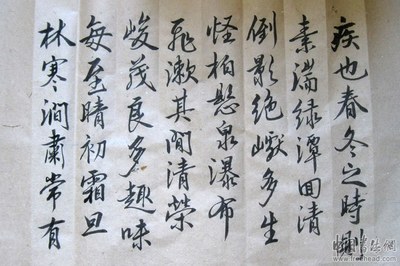 疾也春冬之時則
素湍綠潭回清
倒影絕巘多生
怪柏懸泉瀑布
飛漱其間清榮
峻茂良多趣味
每至晴初霜旦
林寒澗肅常有
www.freehead.com